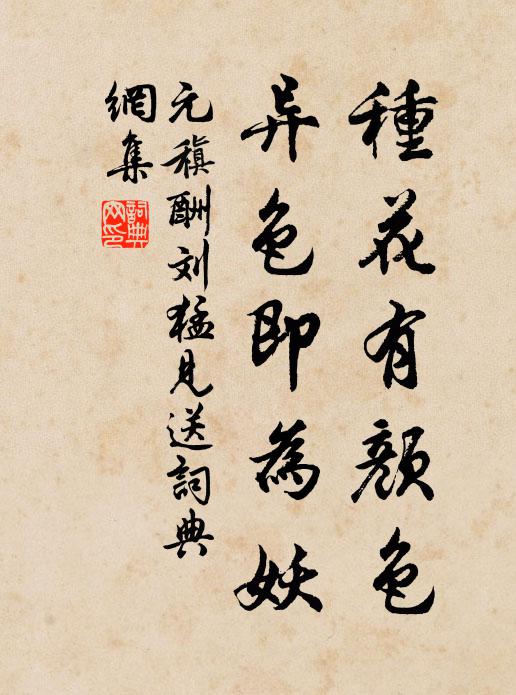 種花有顏色
异色即為妖
元稹酬刘猛見送詞典
網集
詞典网印